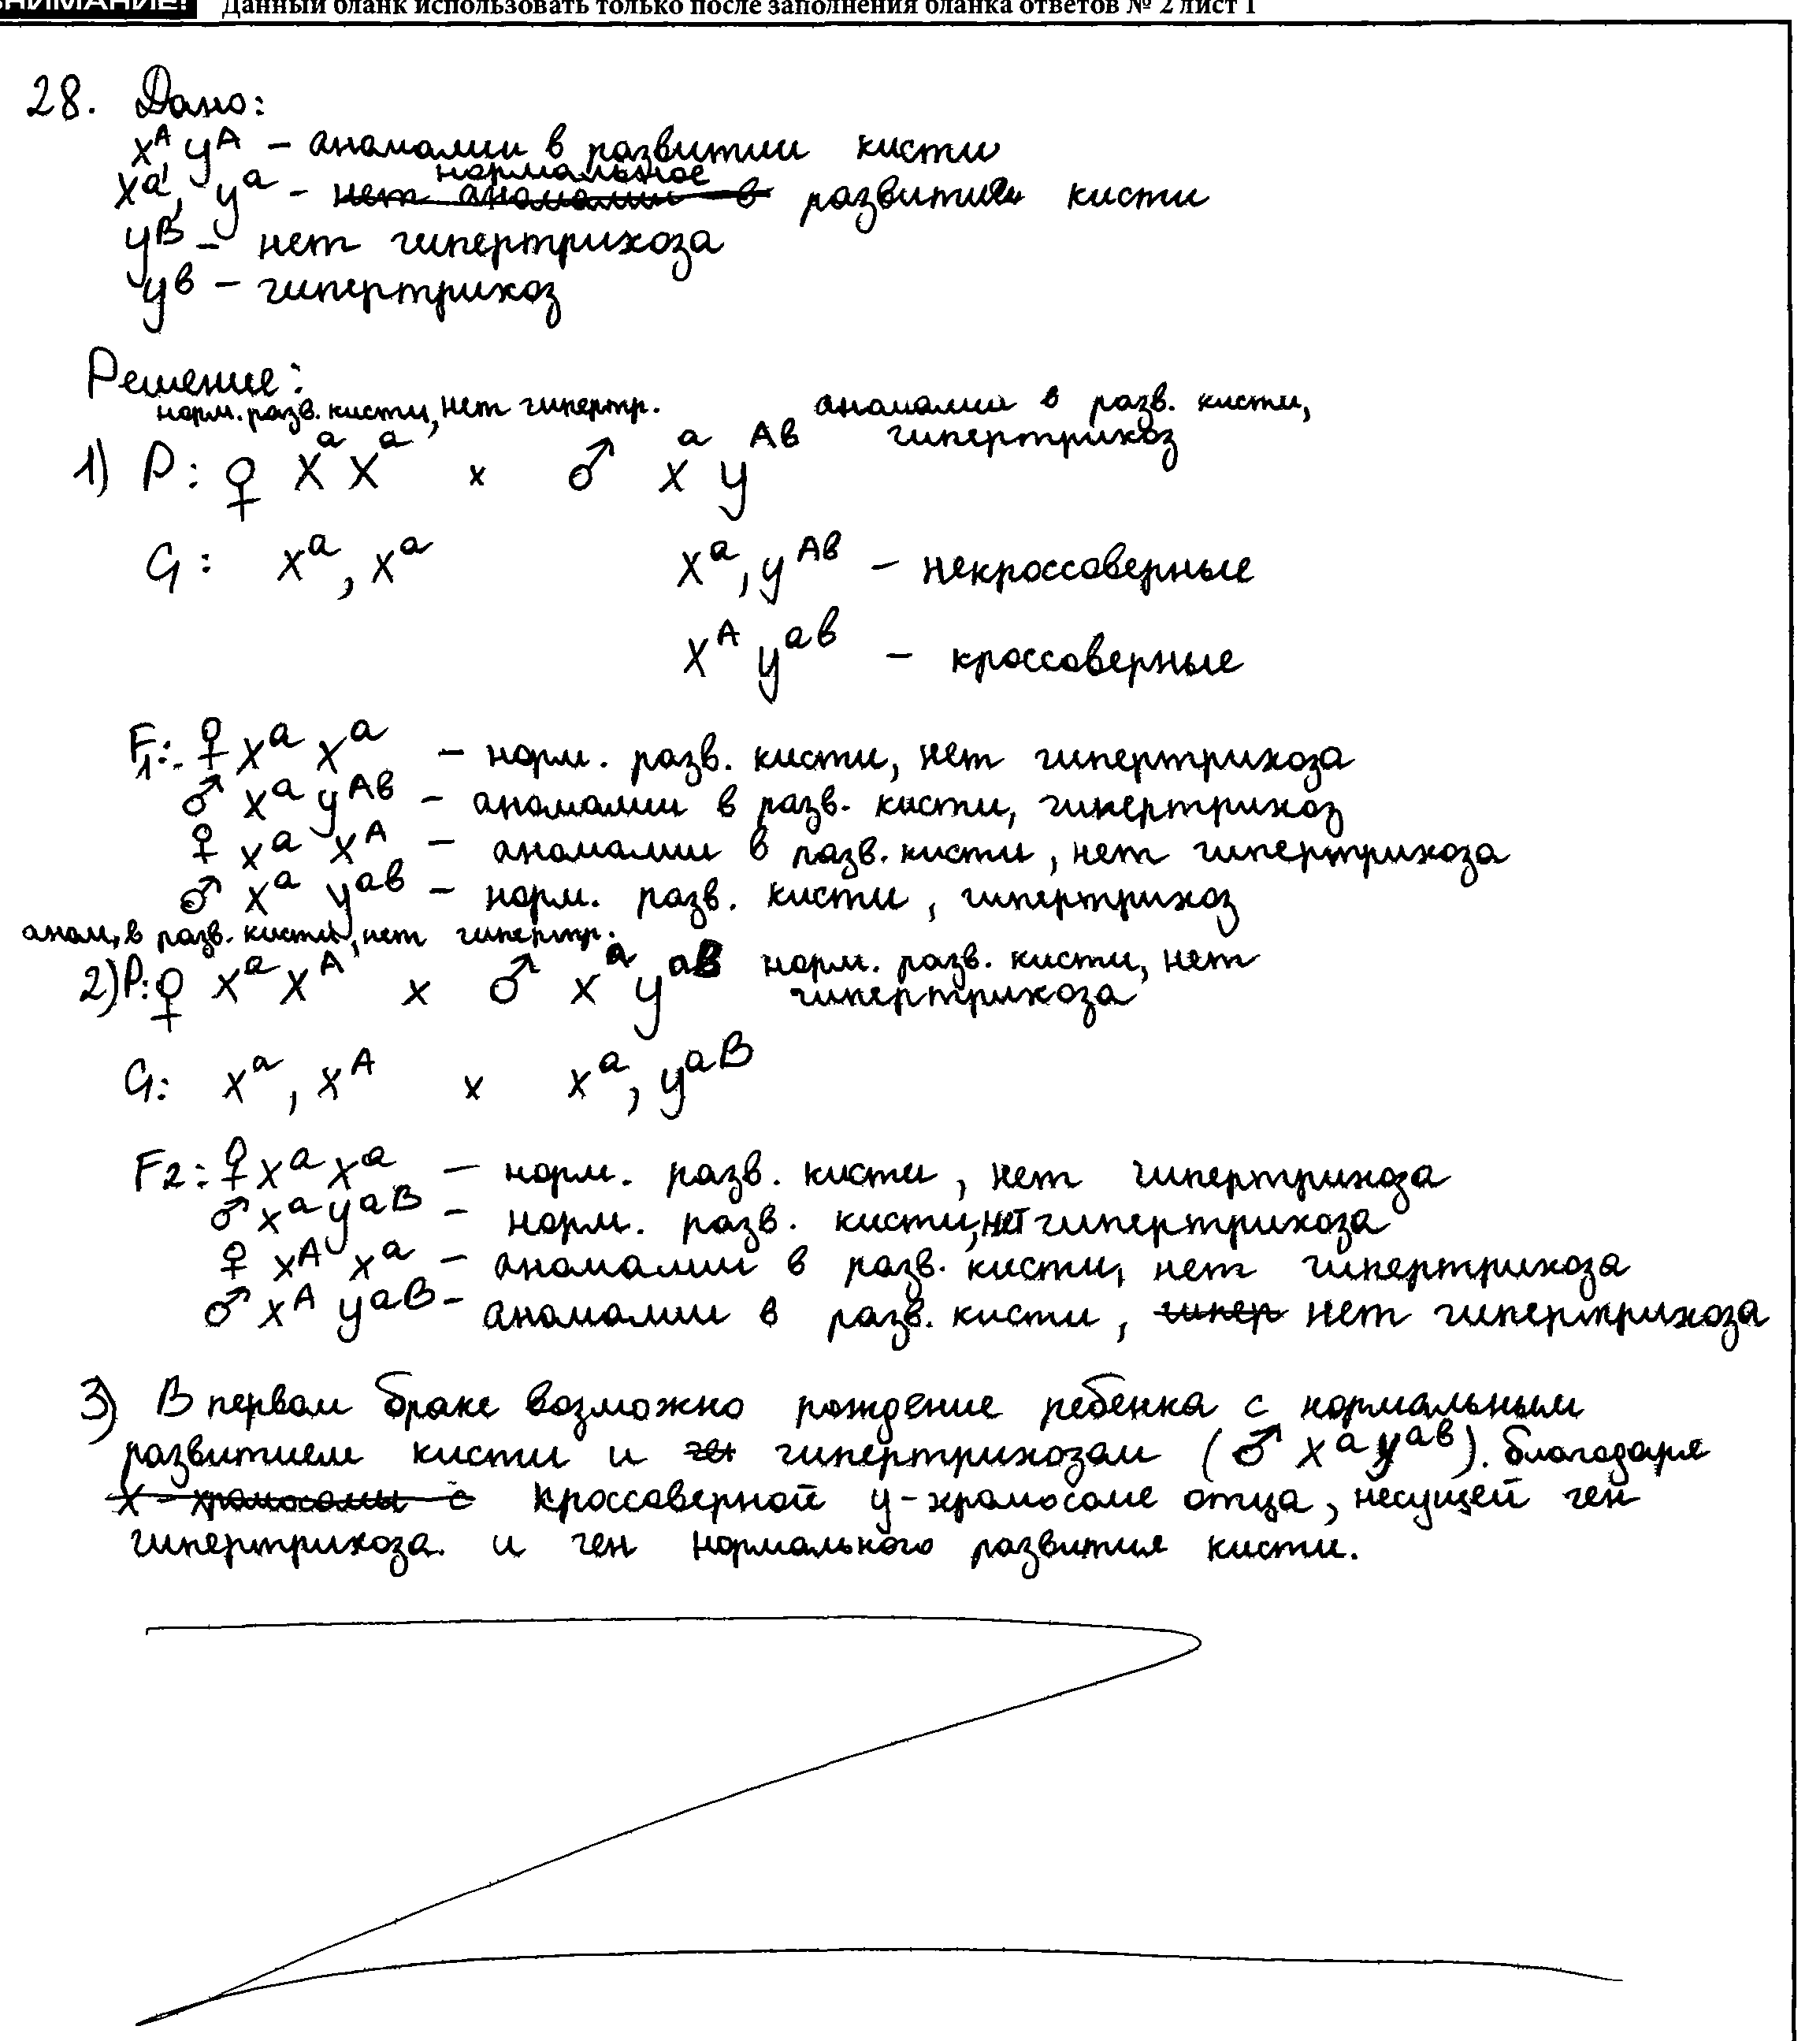 ВНИМАНИЕ! Данный бланк использовать только после заполнения бланка ответов № 2 лист 1
28. Дано:
X^A, y^A – аномалии в развитии кисти
нормальное
X^a, y^a – ~~нет аномалии в~~ развитие кисти
y^B – нет гипертрихоза
y^в – гипертрихоз
Решение:
норм. разв. кисти, нет гипертр. аномалии в разв. кисти,
гипертрихоз
1) P: ♀ X^a X^a x ♂ X^a y^Aв
G: X^a, X^a X^a, y^Aв – некроссоверные
X^A y^aв – кроссоверные
F1: ♀ X^a X^a – норм. разв. кисти, нет гипертрихоза
♂ X^a y^Aв – аномалии в разв. кисти, гипертрихоз
♀ X^a X^A – аномалии в разв. кисти, нет гипертрихоза
♂ X^a y^aв – норм. разв. кисти, гипертрихоз
аном. в разв. кисти, нет гипертр.
2) P: ♀ X^a X^A x ♂ X^a y^aB норм. разв. кисти, нет
гипертрихоза
G: X^a, X^A x X^a, y^aB
F2: ♀ X^a X^a – норм. разв. кисти, нет гипертрихоза
♂ X^a y^aB – норм. разв. кисти, нет гипертрихоза
♀ X^A X^a – аномалии в разв. кисти, нет гипертрихоза
♂ X^A y^aB – аномалии в разв. кисти, ~~гипер~~ нет гипертрихоза
3) В первом браке возможно рождение ребенка с нормальным
развитием кисти и ~~ги~~ гипертрихозом (♂ X^a y^aв). благодаря
~~X-хромосомы с~~ кроссоверной y-хромосоме отца, несущей ген
гипертрихоза. и ген нормального развития кисти.